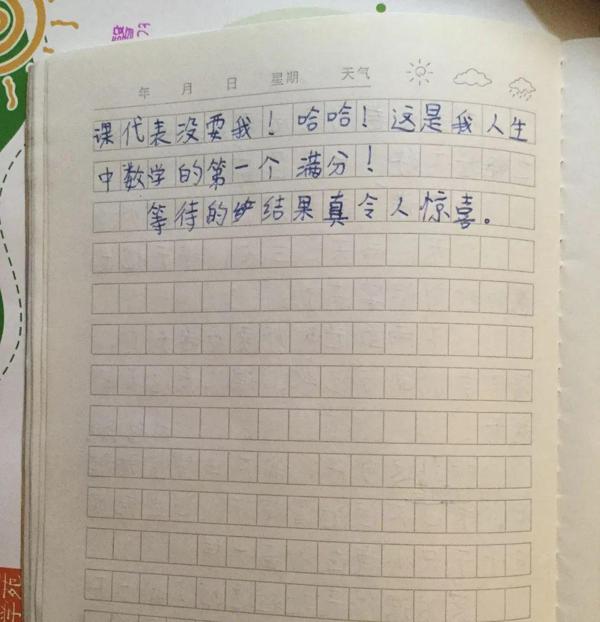 年 月 日 星期 天气
课代表没耍我！哈哈！这是我人生
中数学的第一个满分！
等待的结果真令人惊喜。
学苑